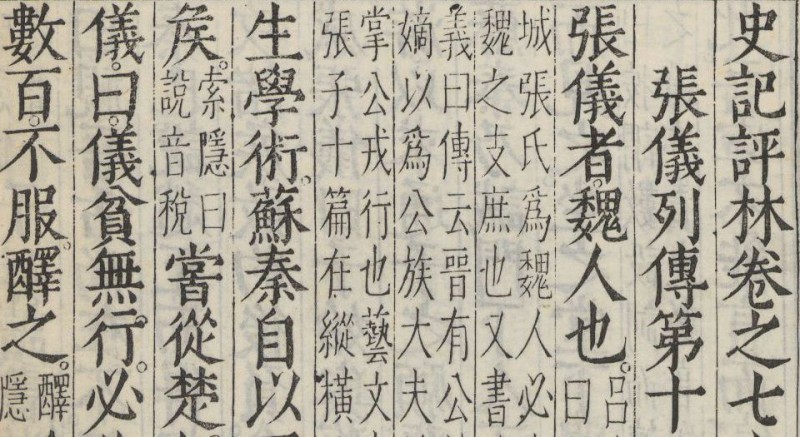 史記評林卷之七
張儀列傳第十
張儀者。魏人也。呂
曰
城張氏爲魏人必
魏之支庶也又書
義曰傳云晉有公
嫡以爲公族大夫
掌公戎行也藝文
張子十篇在縱橫
生學術。蘇秦自以
矦。索隱曰
說音稅
甞從楚
儀。曰。儀貧無行。必
數百。不服。醳之。醳
隱